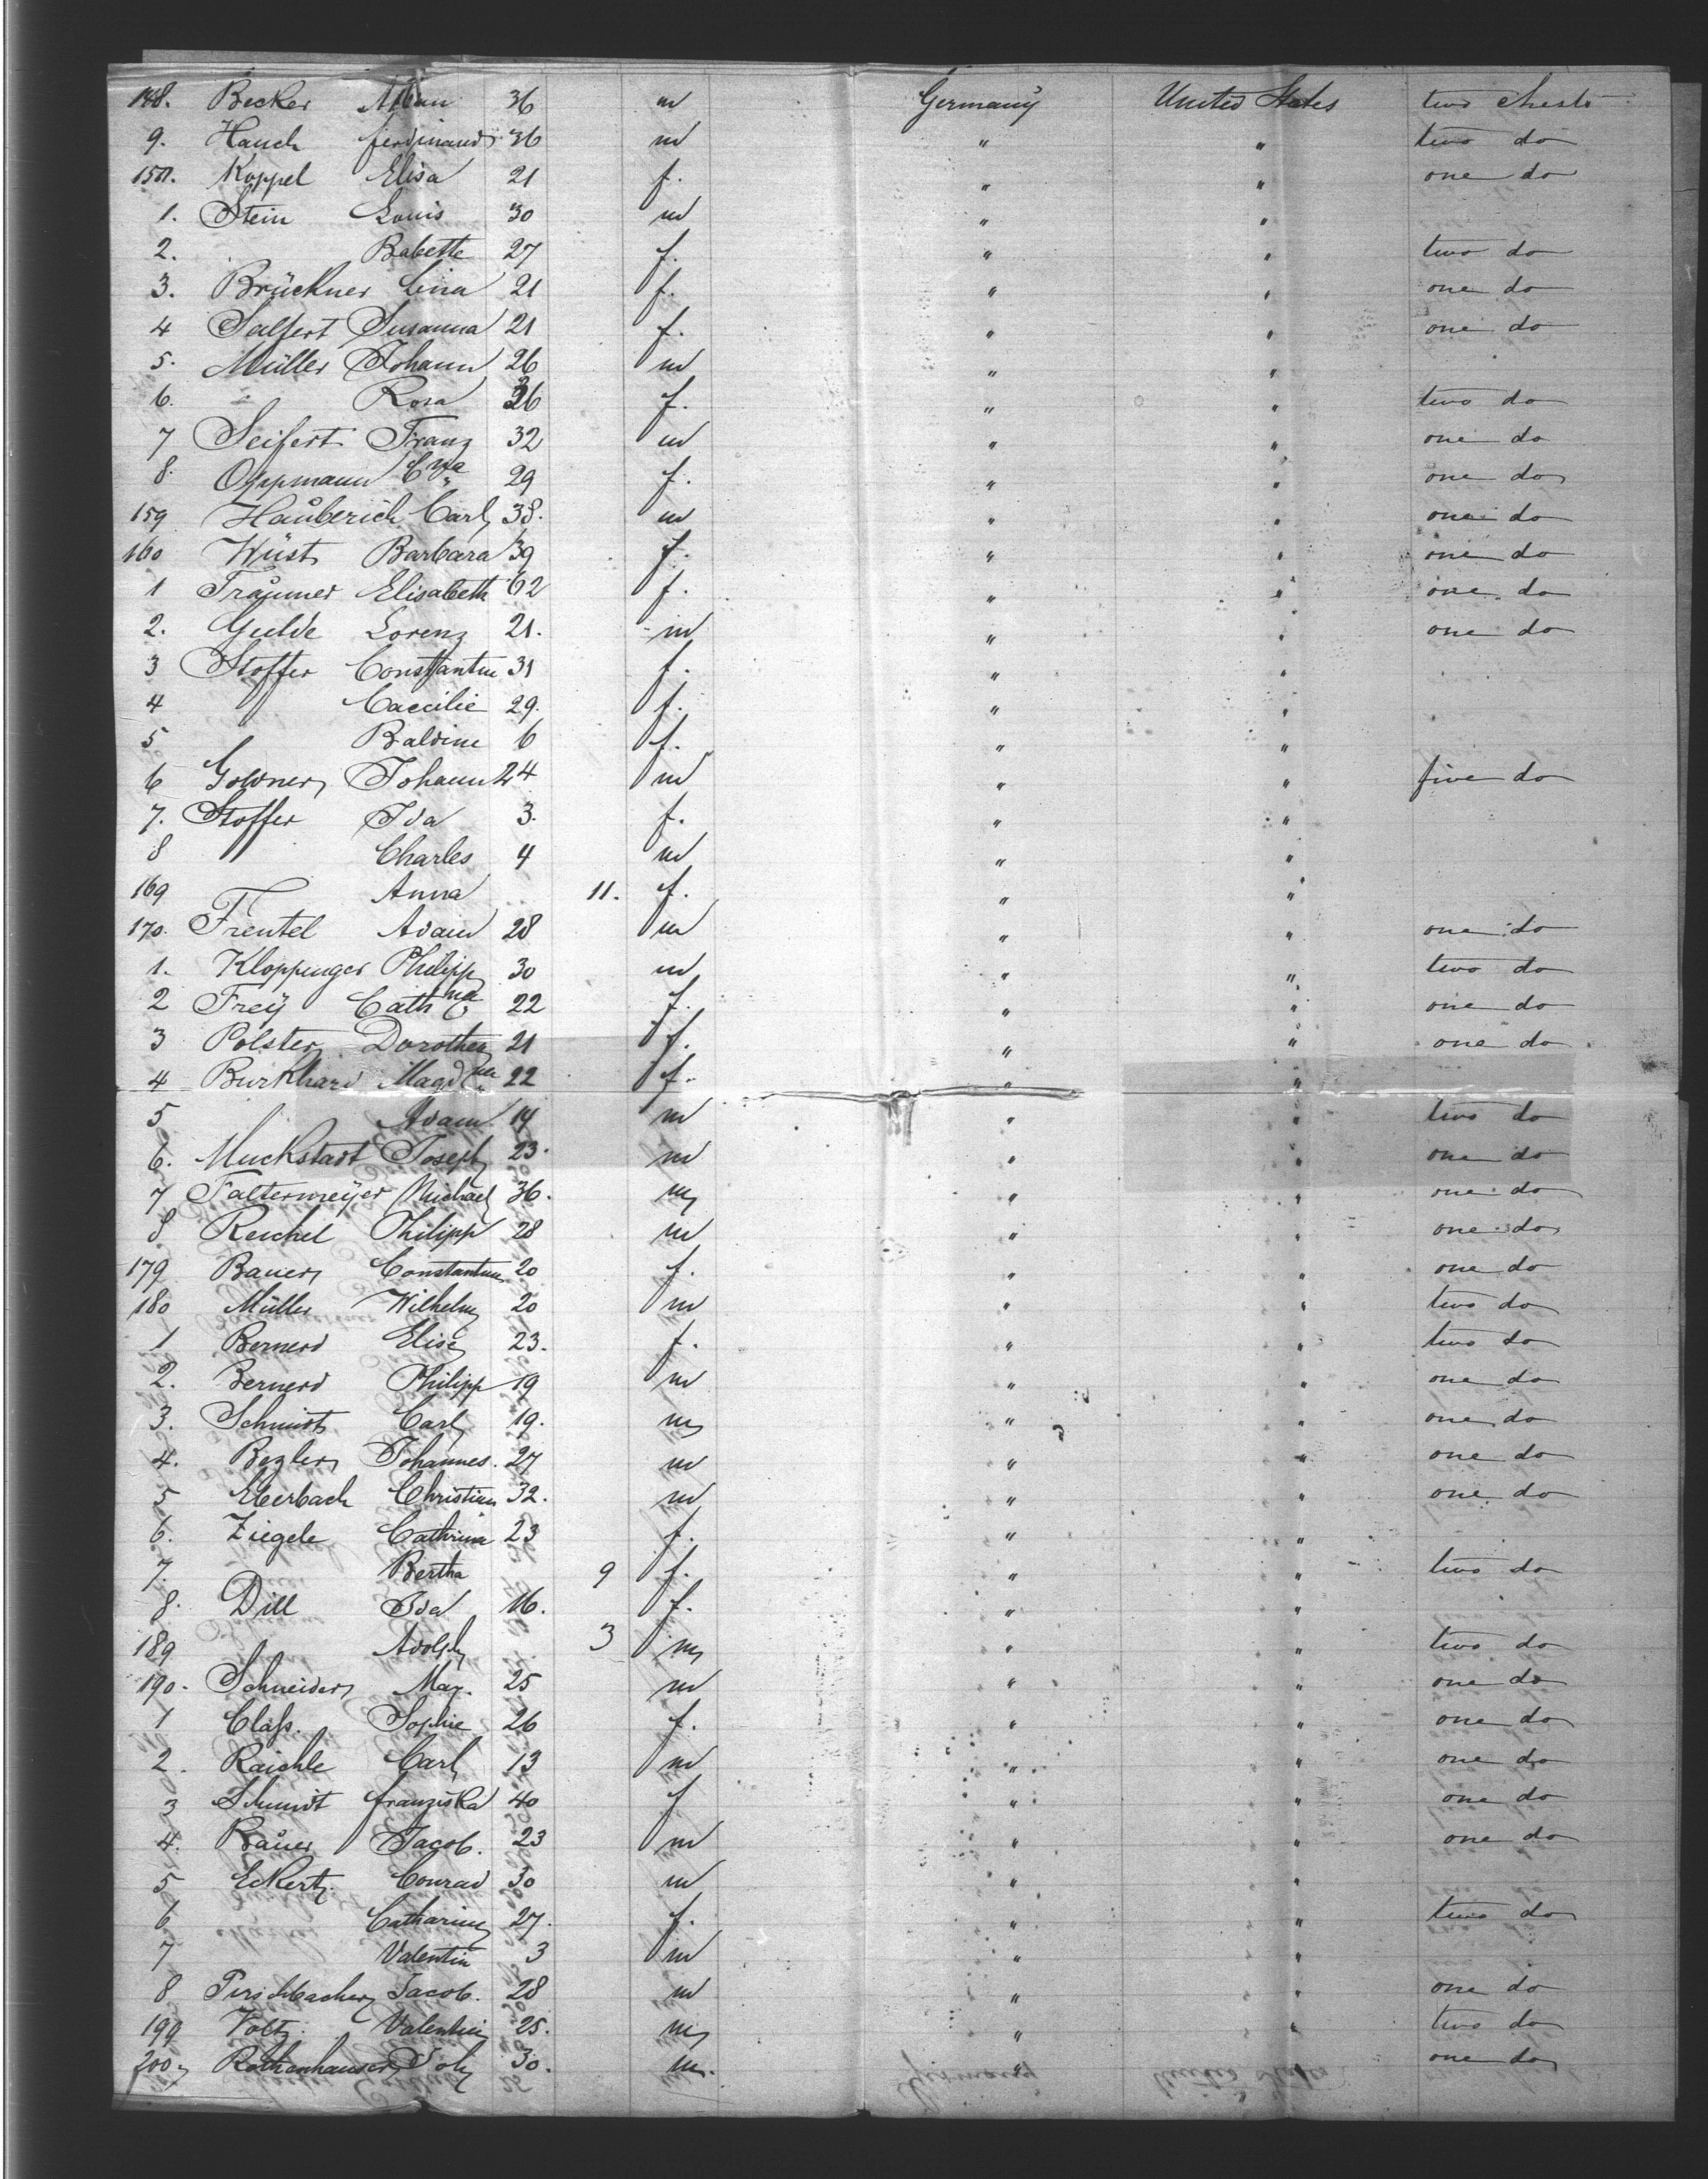 148. Becker Alban 36 m Germany United States two chests
9. Hauck ferdinand 36 m " " two do
150. Koppel Elisa 21 f. " " one do
1. Stein Louis 30 m " "
2. Babette 27 f. " " two do
3. Brückner Lina 21 f. " " one do
4 Salfert Susanna 21 f. " " one do
5. Müller Johann 26 m " "
6. " Rosa 26 f. " " two do
7 Seifert Franz 32 m " " one do
8. Oppmann Eva 29 f. " " one do
159 Hauberich Carl 38. m " " one do
160 Wüst Barbara 39 f. " " one do
1 Traumer Elisabeth 62 f. " " one do
2. Gulde Lorenz 21. m " " one do
3 Stoffer Constantin 31 f. " "
4 Caecilie 29. f. " "
5 Baldine 6 f. " "
6 Goldner Johann 24 m " " five do
7. Stoffer Ida 3. f. " "
8 Charles 4 m " "
169 Anna 11. f. " "
170. Frentel Adam 28 m " " one do
1. Kloppinger Philipp 30 m " " two do
2 Freÿ Cathna 22 f. " " one do
3 Polster Dorothea 21 f. " " one do
4 Burkhard Magdna 22 f. " "
5 Adam 14 m " " two do
6. Muckstadt Joseph 23. m " " one do
7 Faltermeÿer Michael 36. m " " one do
8 Reichel Philipp 28 m " " one do
179 Bauer Constantin 20 f. " " one do
180 Müller Wilhelm 20 m " " two do
1 Bernerd Elise 23. f. " " two do
2. Bernerd Philipp 19 m " " one do
3. Schmidt Carl 19. m " " one do
4. Bezler Johannes. 27 m " " one do
5 Eberbach Christian 32. m " " one do
6. Ziegele Cathrina 23 f. " "
7. Bertha 9 f. " " two do
8. Dill Ida 16. f. " "
189 Adolph 3 m " " two do
190. Schneider Max. 25 m " " one do
1 Claß. Sophie 26 f. " " one do
2. Raichle Carl 13 m " " one do
3 Schmidt franziska 40 f " " one do
4. Bauer Jacob. 23 m " " one do
5 Eckert Conrad 30 m " "
6 Catharina 27. f. " " two do
7 Valentin 3 m " "
8 Jacob. 28 m " " one do
199 Voltz. Valentin 25. m " " two do
200 Rothenhauser Joh 30. m. " one do